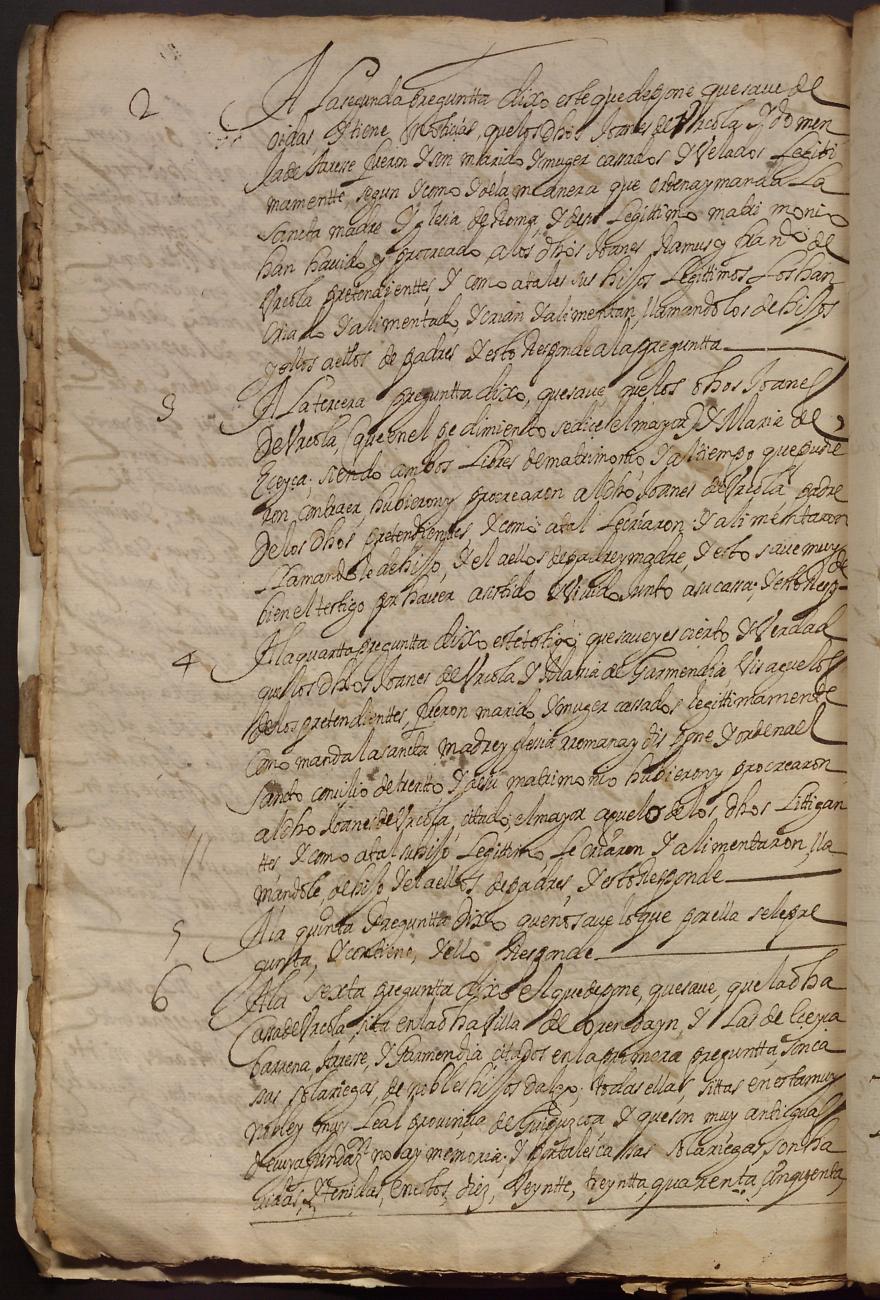 2 A La segunda preguntta dixo este que depone que saue de
oidas, y tiene notiçias, que los dhos Joanes de Vrcola, y domen
Ja de Jarere fueron y son marido y muger casados y Velados Legiti
mamentte, segun y como y de la manera que ordena y manda La
sancta madre Yglesia de Roma, y de su Legittimo matrimonio
han hauido y procreado a los dhos Joanes, Ramus y fran.do de
Vrcola pretendienttes, y como a tales sus hijjos Legittimos Los han
Criado y alimentado, y crian y alimentan, llamandolos de hijjos
y ellos a ellos de padres y esto Responde a la preguntta
3 A La tercera preguntta dixo, que saue, que los dhos Joanes
De Vrcola (que en el pedimiento se dice el mayor) y Maria de
Eceyça, siendo ambos Libres de matrimonio, y al tiempo que pudie
ron contraer, hubieron y procrearon al dho Joanes de Vrcola, padre
De los dhos pretendientes, y como a tal Le criaron y alimentaron
Llamandole de hijjo, y el a ellos de padre y madre, y esto saue muy
bien el testigo por hauer asistido y Viuido junto a su cassa; y esto Resp.de
4 A la quarta preguntta dixo este testigo, que saue y es cierto y Verdad
que los dhos Joanes de Vrcola y Maria de Garmendia, Visaguelos
de los pretendienttes, fueron marido y muger cassados legittimamente
Como manda la sancta madre yglesia rromana y dispone y ordena el
Sancto conçilio de trento, y de su matrimonio hubieron y procrearon
al dho Joanes de Vrcola, citado, el mayor aguelo de los dhos Littigan
ttes y como a tal su hijo Legittimo Le criaron y alimentaron, lla
mandole, de hijo y el a ellos de padres, y esto Responde
5 A la quinta Preguntta Dixo que no saue lo que por ella se le pre
gunta, y contiene, y ello Responde
6 A la sexta preguntta dixo el que depone, que saue, que la dha
Cassa de Vrcola, sita en la dha Villa de orendayn, y Las de Eceyça
barrena, Jarere, y Garmendia citados en la primera preguntta, son ca
sas solariegas, de nobles hijjos dalgo; todas ellas, sittas en esta muy
Noble y muy Leal prouinçia de Guipuzcoa y que son muy antiguas
de cuya fundaz.on no ay memoria: y por tales casas solariegas, son ha
uidas, y tenidas, en estos, diez, Veyntte, treyntta, quarenta, cinquenta,